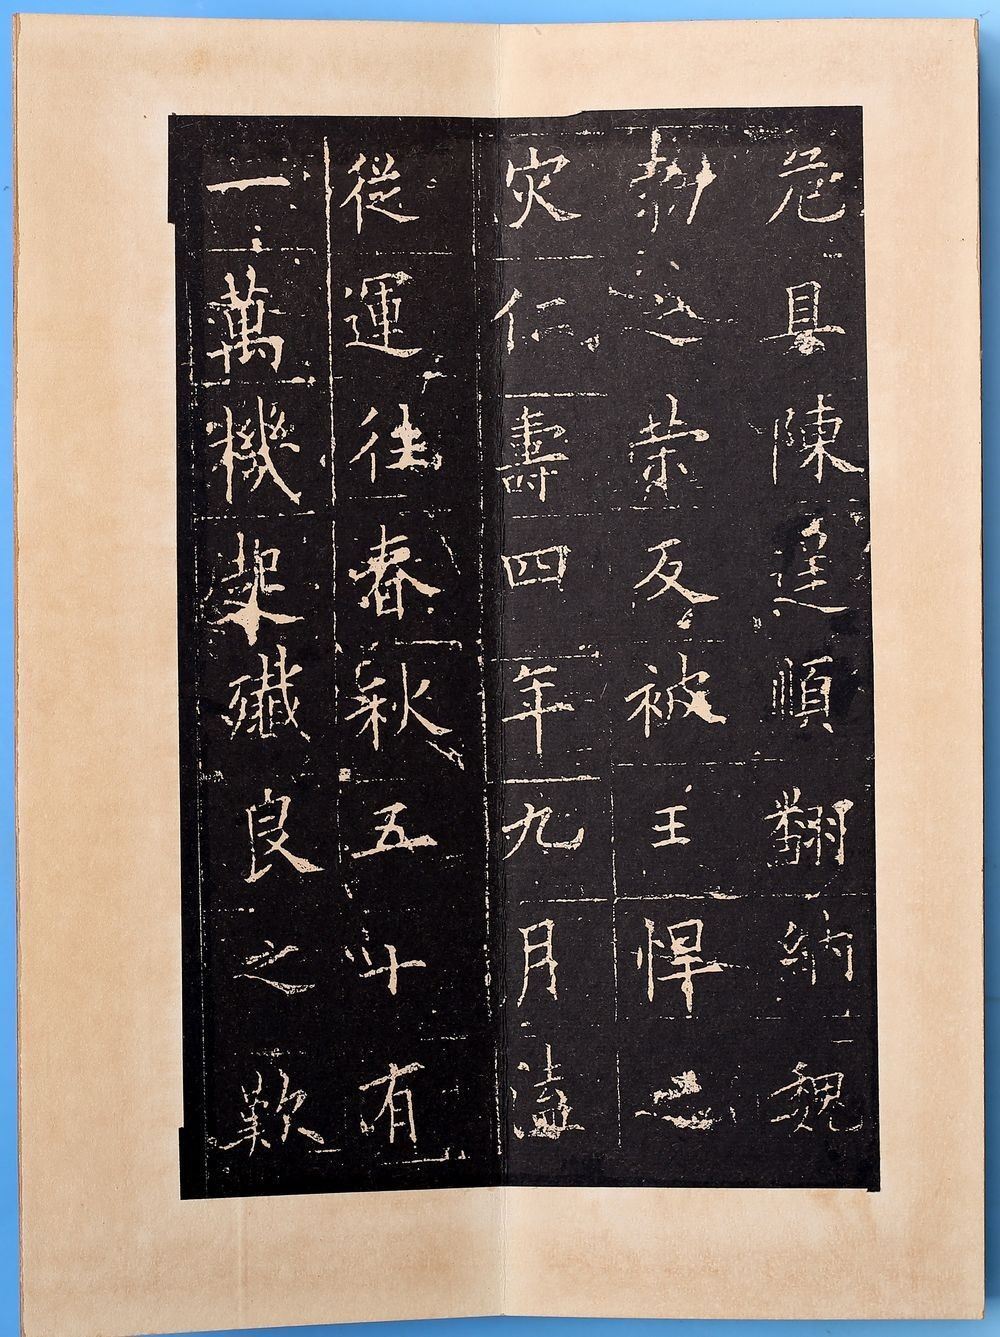 危具陳逆順翻納魏
勃之策反被王悍之
灾仁壽四年九月溘
從運往春秋五十有
一萬機架殲良之歎